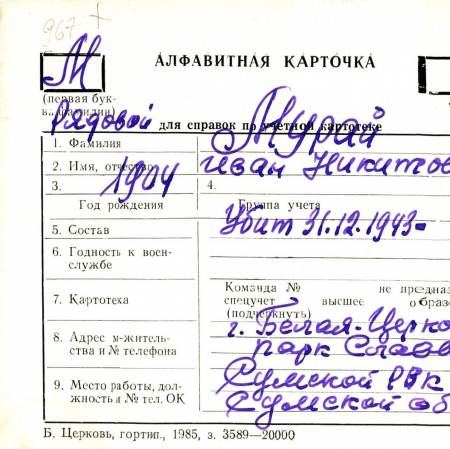 967
М
АЛФАВИТНАЯ КАРТОЧКА
(первая бук-
ва фамилии)
Рядовой для справок по учетной картотеке
1. Фамилия Мурай
2. Имя, отчество Иван Никитов
3. 1904 4.
Год рождения Группа учета
5. Состав Убит 31.12.1943-
6. Годность к воен-
службе
Команда № не предназ
7. Картотека спецучет высшее образо
(подчеркнуть)
8. Адрес м-житель-
ства и № телефона
г. Белая-Церко
парк Слава
9. Место работы, дол-
жность и № тел. ОК
Сумской РВК
Сумской об
Б. Церковь, гортип., 1985, з. 3589—20000